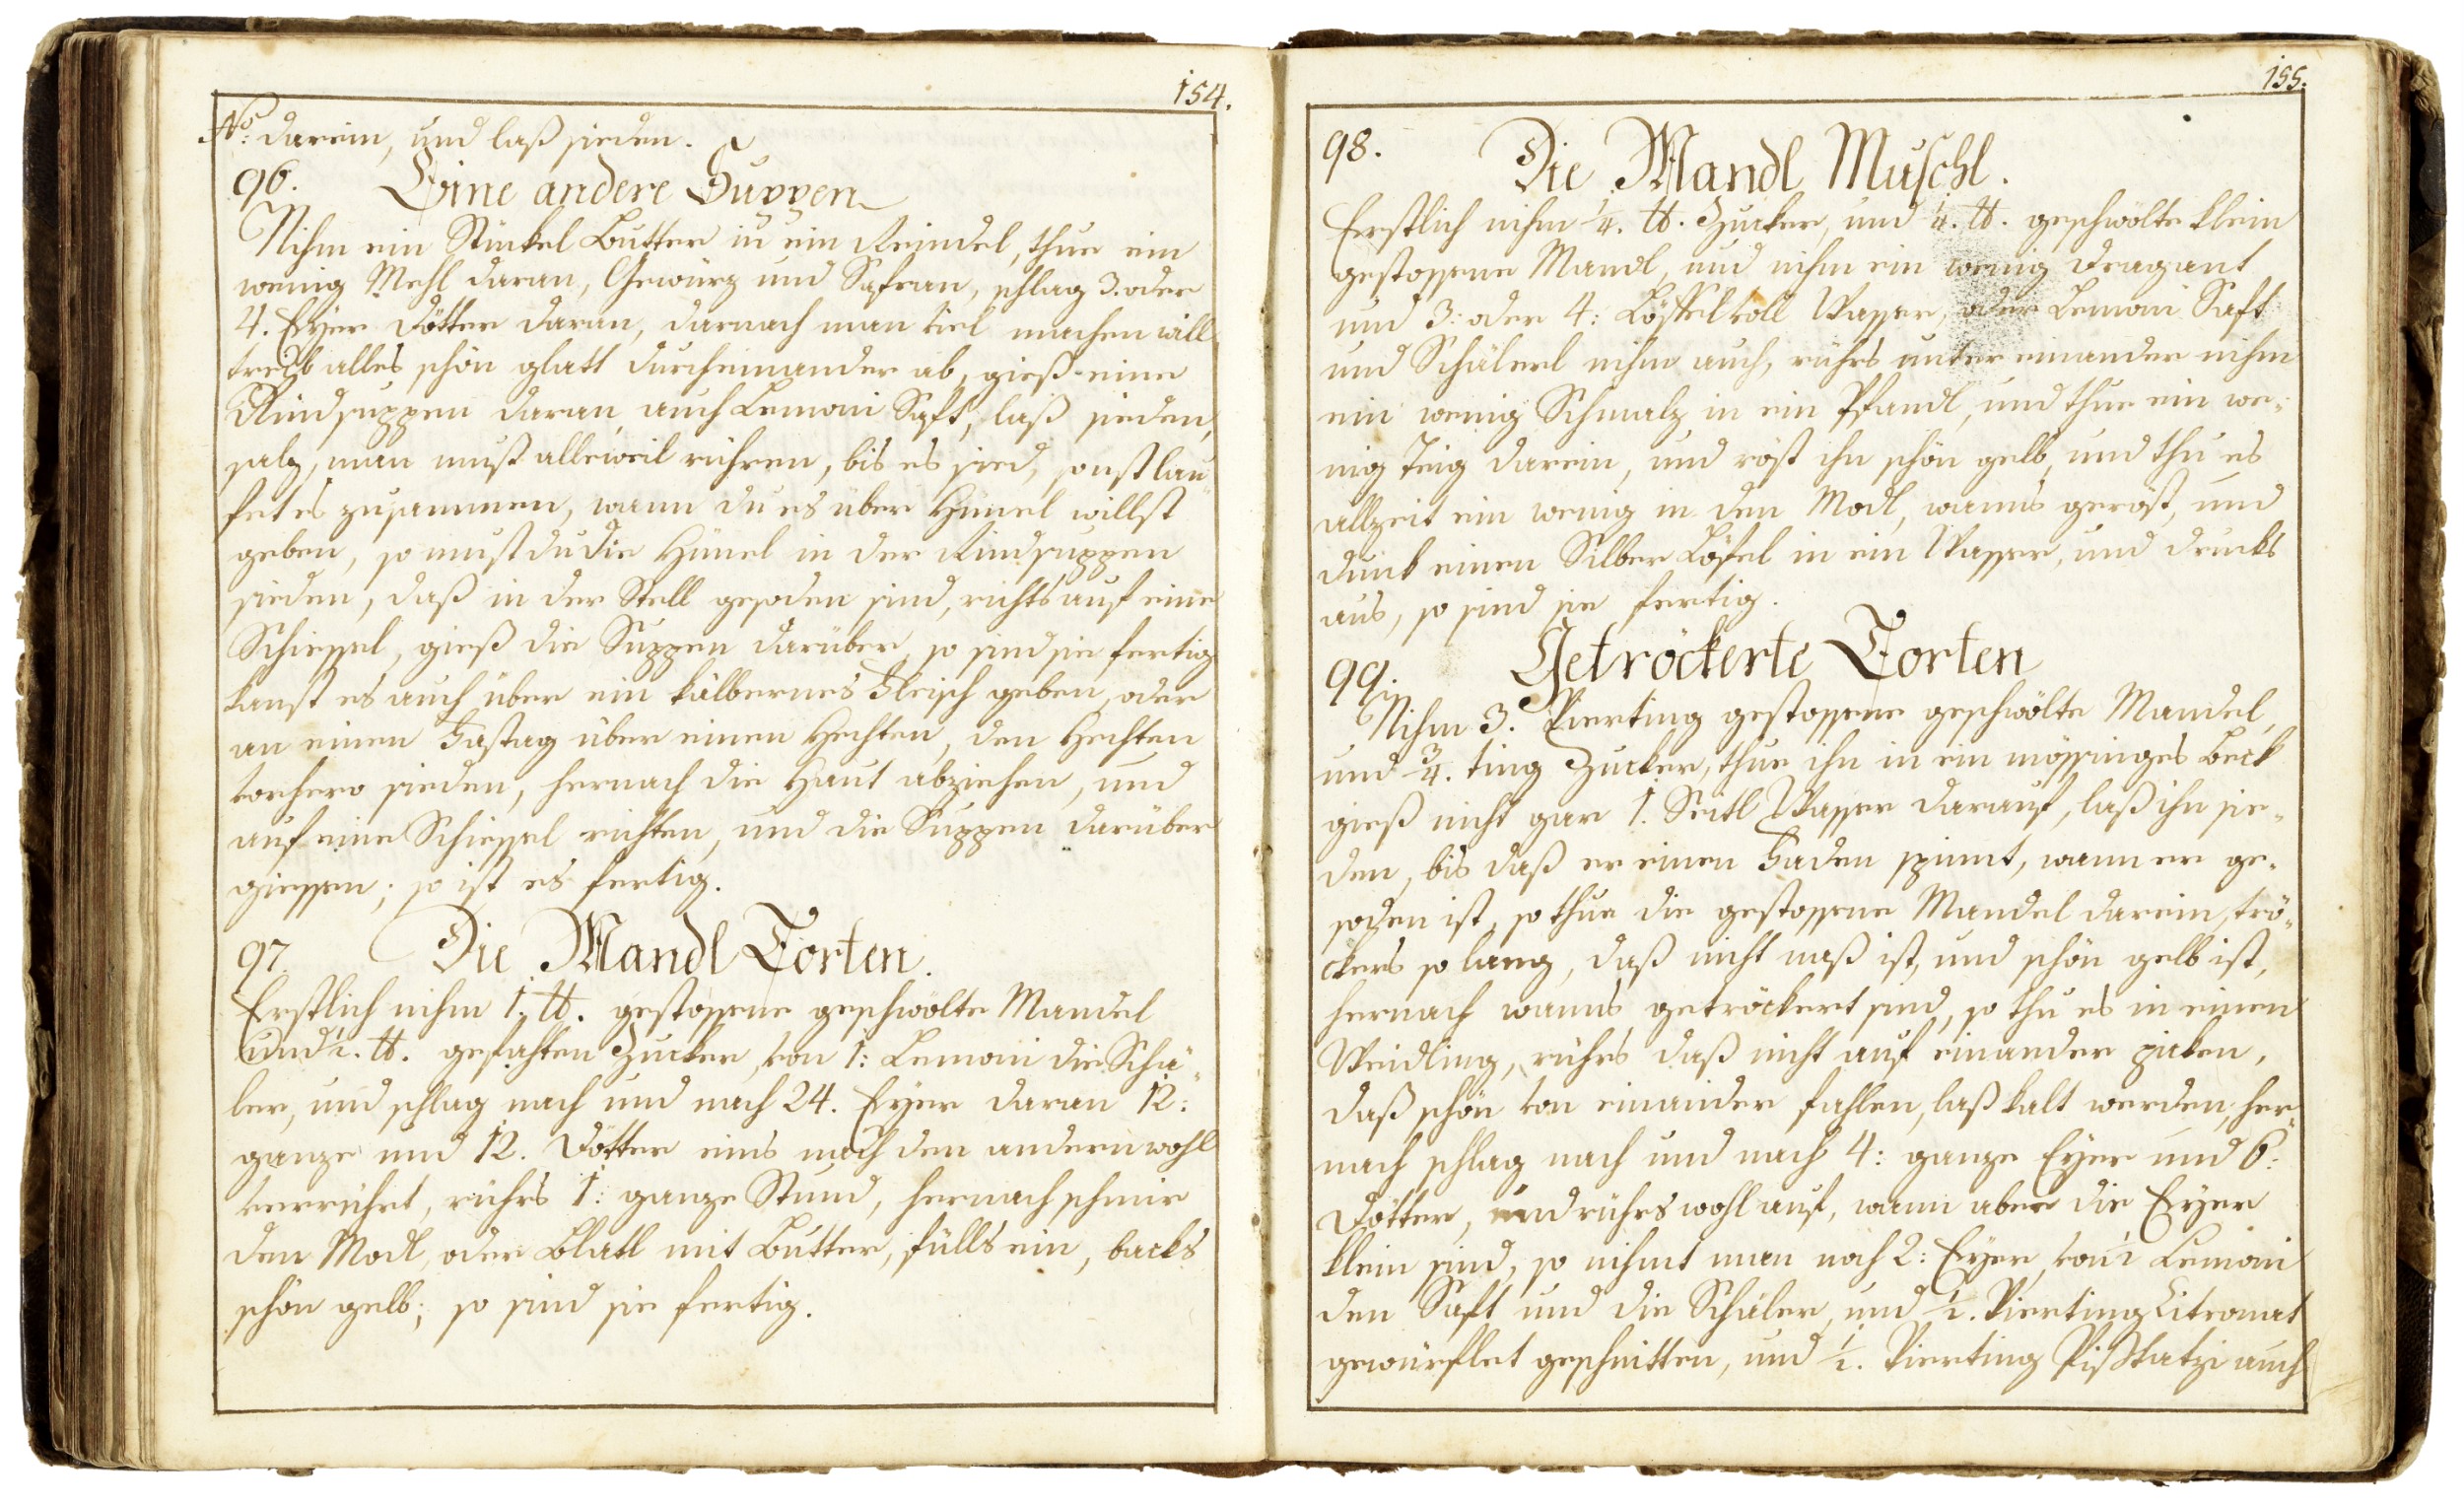 154.
No: darein, und laß sieden.
96. Eine andere Suppen
Nihm ein Stückel Butter in ein Reindel, thue ein
wenig Mehl daran, Gewürz und Safran, schlag 3. oder
4. Eÿer Dötter daran, darnach man viel machen will
treib alles schön glatt durcheinander ab, gieß eine
Rindsuppen daran, auch Lemoni Saft, laß sieden,
salz, man must alleweil rühren, bis es sied, sonst lau¬
fet es zusammen, wann du es über Hünel willst
geben, so must du die Hünel in der Rindsuppen
sieden, daß in der Stell gesoden sind, richts auf eine
Schiessel, gieß die Suppen darüber, so sind sie fertig
kanst es auch über ein kälbernes Fleisch geben, oder
an einen Fastag über einen Hechten, den Hechten
vorhero sieden, hernach die Haut abziehen, und
auf eine Schiessel richten, und die Suppen darüber
giessen; so ist es fertig.
97. Die Mandl Torten.
Erstlich nihm 1. ℔. gestossene geschwölte Mandel
und 1. ℔. gefahten Zucker, von 1: Lemoni die Schä¬
ler, und schlag nach und nach 24. Eÿer daran 12:
ganze und 12. Dötter eins nach den andern wohl
verrührt, rührs 1: ganze Stund, hernach schmir
den Modl, oder Blatl mit Butter, fülls ein, backs
schön gelb; so sind sie fertig.
155.
98. Die Mandl Muschl.
Erstlich nihm 1/4. ℔. Zucker, und 1/4. ℔. geschwölte klein
gestossene Mandl, und nihm ein wenig Dragant
und 3: oder 4: Löffel voll Wasser, oder Lemoni Saft
und Schälerl nihm auch, rührs unter einander nihm
ein wenig Schmalz in ein Pfandl, und thue ein we¬
nig Teig darein, und röst ihn schön gelb, und thu es
allzeit ein wenig in den Modl, wanns geröst, und
dunk einen Silber Löfel in ein Wasser, und drucks
aus, so sind sie fertig.
99. Getröckerte Torten
Nihm 3. Vierting gestossene geschwölte Mandel,
und 3/4. ting Zucker, thue ihn in ein mössinges Beck
gieß nicht gar 1. Seitl Wasser darauf, laß ihn sie¬
den, bis daß er einen Faden spinnt, wann er ge¬
soden ist, so thue die gestossene Mandel darein, trö¬
ckers so lang, daß nicht naß ist, und schön gelb ist,
hernach wanns getröckert sind, so thu es in einen
Weidling, rührs daß nicht auf einander picken,
daß schön von einander fahlen, laß kalt werden, her¬
nach schlag nach und nach 4: ganze Eÿer und 6:
Dötter, und rührs wohl auf, wann aber die Eÿer
klein sind, so nihmt man noch 2: Eÿer, von 1 Lemoni
den Saft und die Schäler, und 1/2. Vierting Citronat
gewürflet geschnitten, und 1/2. Vierting Pisstatzi auch